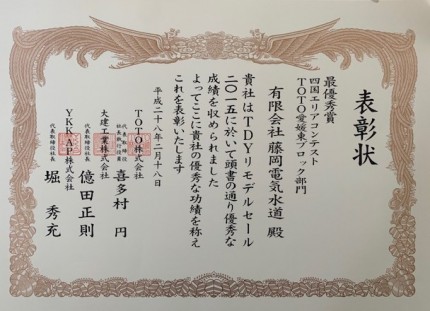 表彰状
最優秀賞
四国エリアコンテスト
TOTO愛媛東ブロック部門
有限会社 藤岡電気水道 殿
貴社はTDYリモデルセール
二〇一五に於いて頭書の通り優秀な
成績を収められました
よってここに貴社の優秀な功績を称え
これを表彰いたします
平成二十八年二月十八日
TOTO株式会社
代表取締役
社長執行役員
喜多村 円
大建工業株式会社
代表取締役社長
億田正則
YKKAP株式会社
代表取締役社長
堀 秀充